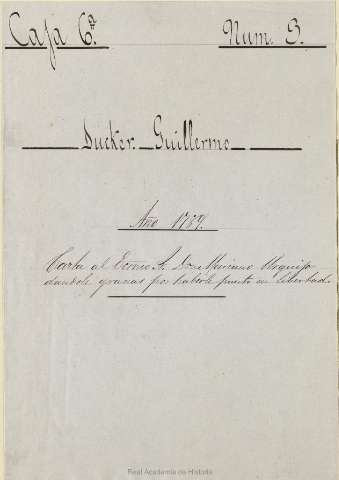 Caja 6ª. Num. 3.
Ducker Guillermo
Año 1789.
Carta al Exmo Sr. Don Mariano Urquijo
dandole gracias por haberle puesto en libertad.
Real Academia de Historia